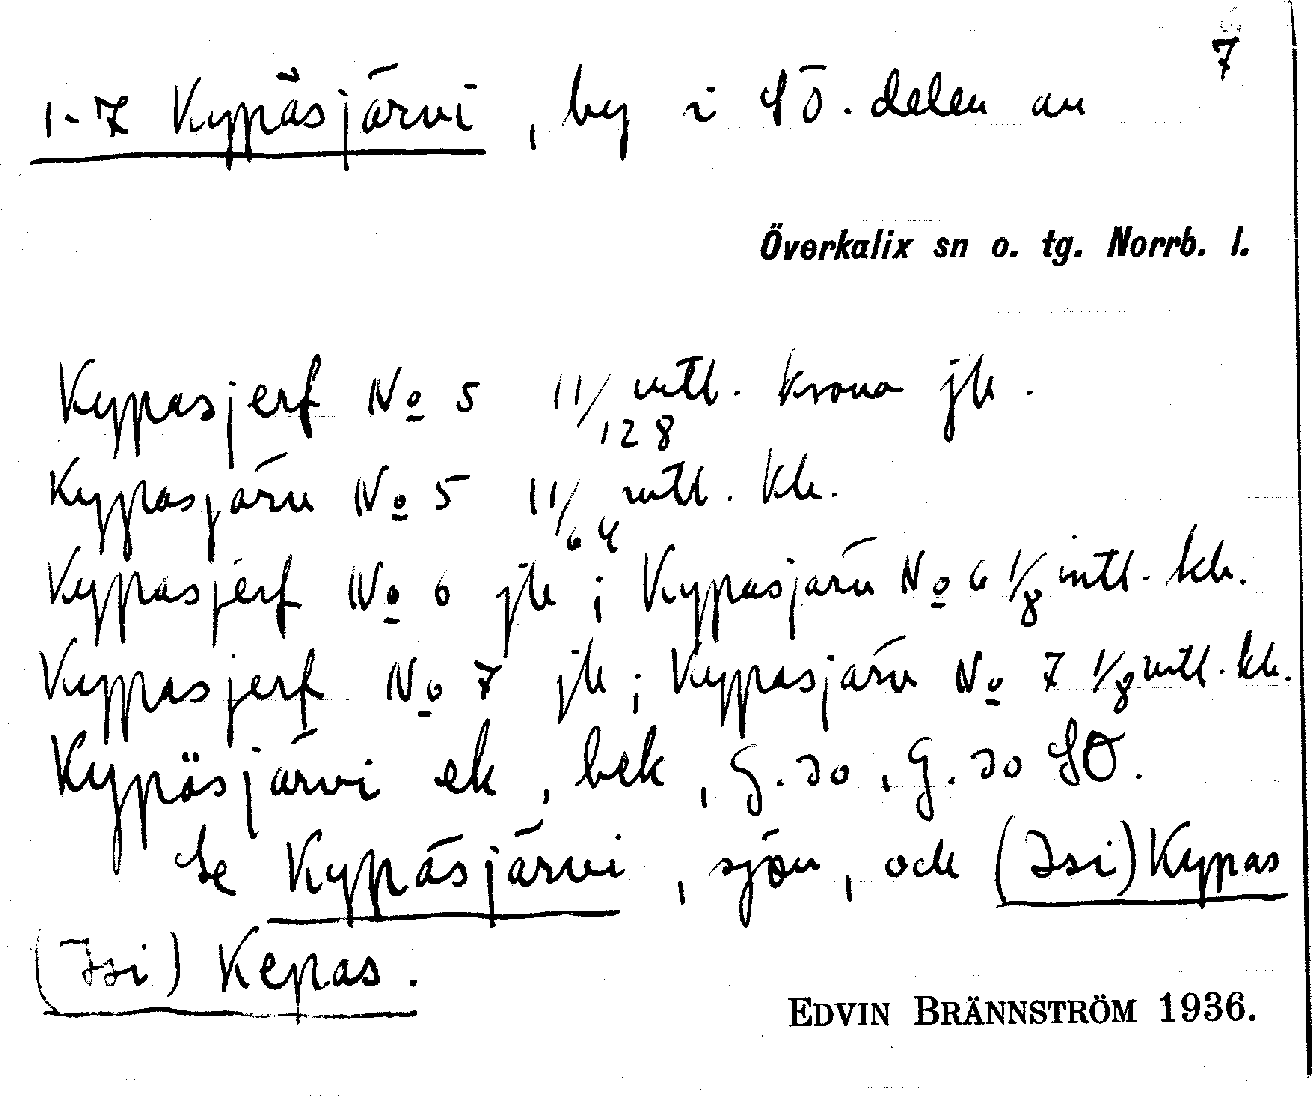 7
1-7 Kypäsjärvi, by i SÖ. delen av
Överkalix sn o. tg. Norrb. l.
Kypasjerf No 5 11/128 mtl. krono jb.
Kypasjärv No 5 11/64 mtl. kh.
Kypasjerf No 6 jb; Kypasjärv No 6 1/8 mtl. kh.
Kypasjerf No 7 jb; Kypasjärv No 7 1/8 mtl. kh.
Kypäsjärvi ek, bek, G.30, G.30 SO.
Se Kypäsjärvi, sjön, och (Isi)Kypas
(Isi) Kepas.
EDVIN BRÄNNSTRÖM 1936.